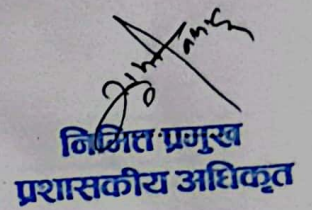 निमित्त प्रमुख
प्रशासकीय अधिकृत